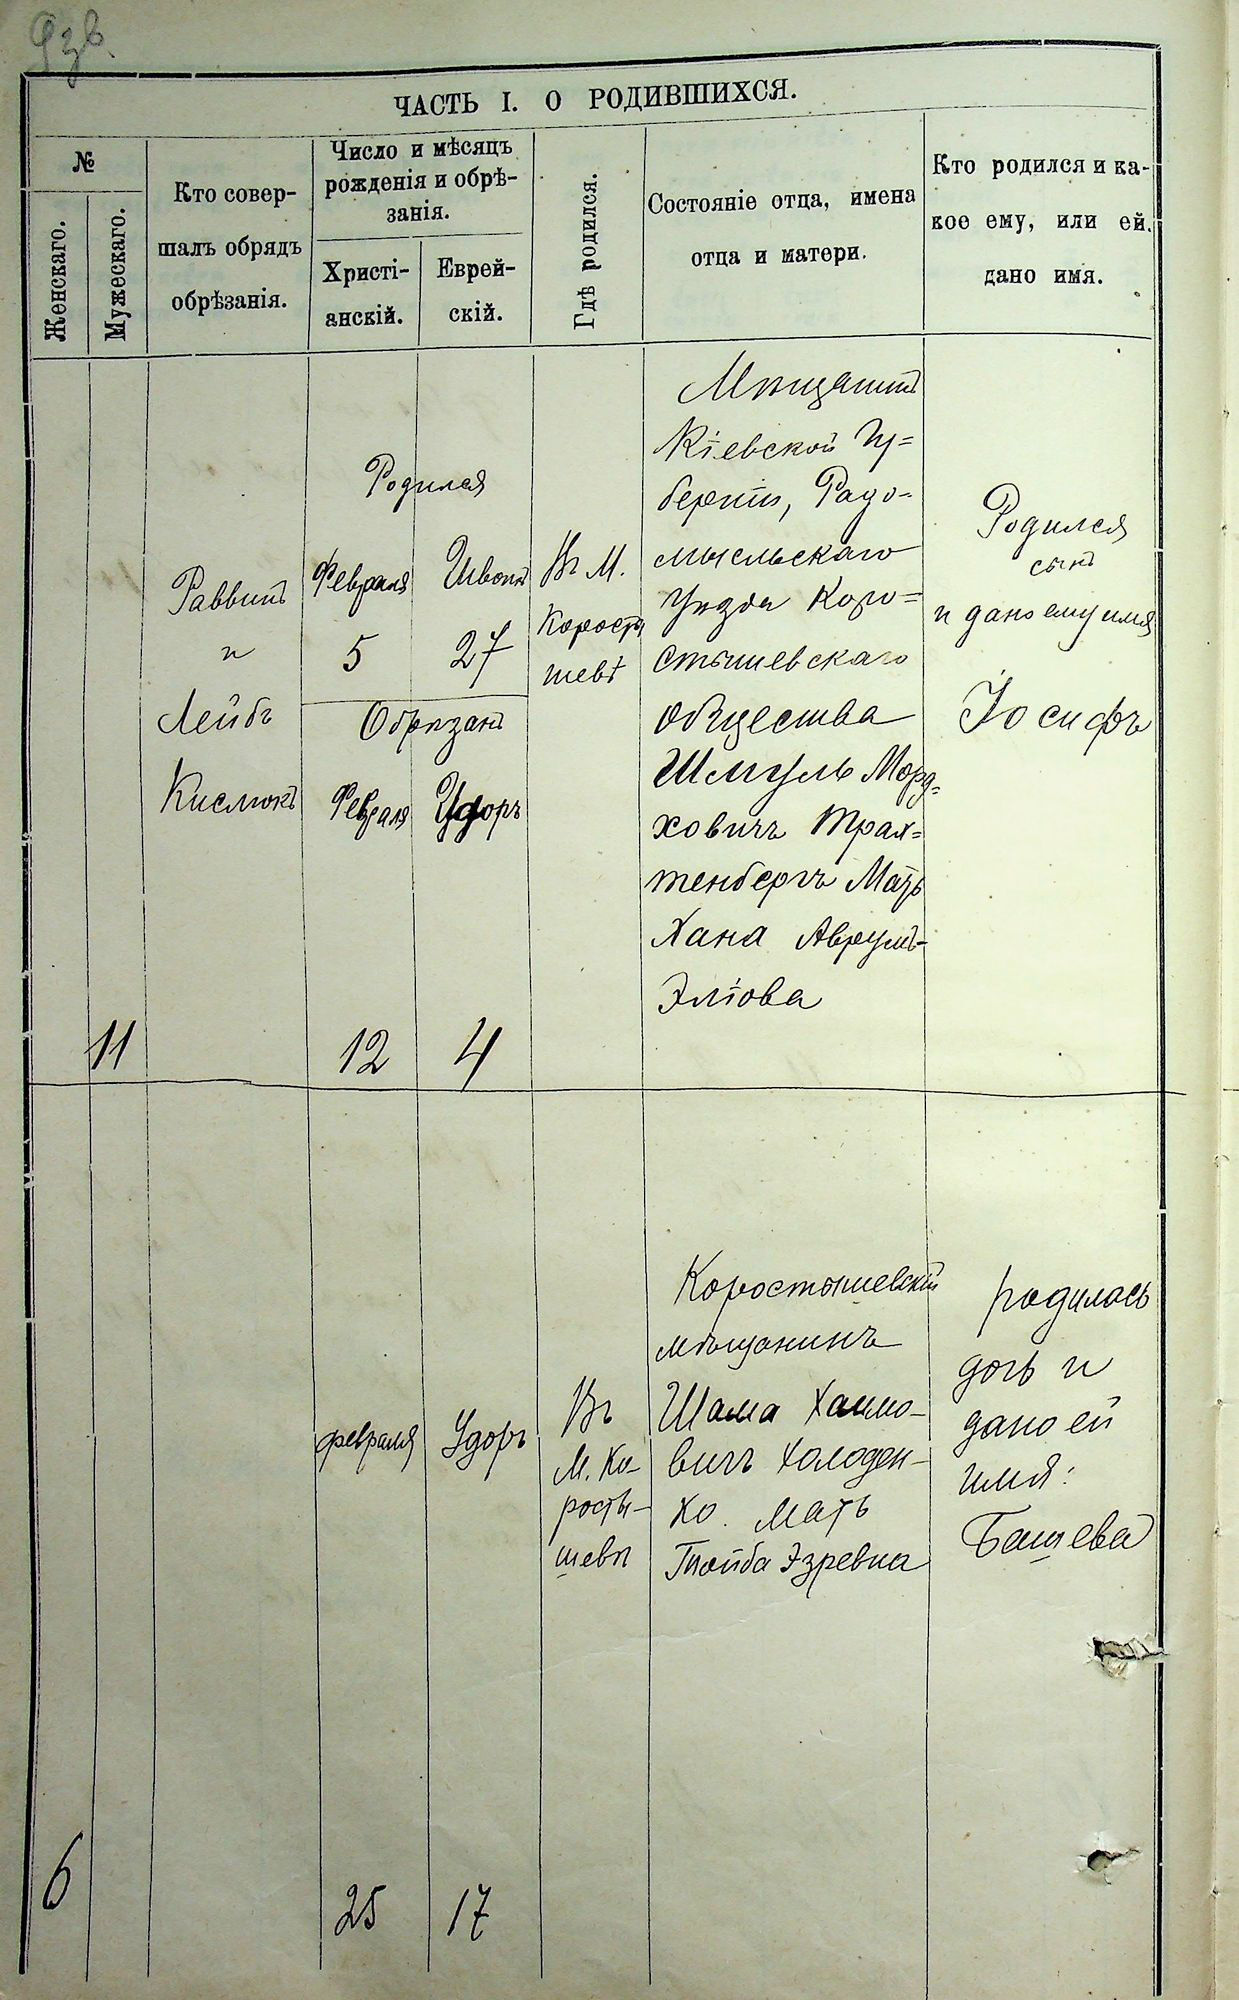 93б.
ЧАСТЬ I. О РОДИВШИХСЯ.
№
Женскаго.
Мужескаго.
Кто совер-
шалъ обрядъ
обрѣзанія.
Число и мѣсяцъ
рожденія и обрѣ-
занія.
Христі-
анскій.
Еврей-
скій.
Гдѣ родился.
Состояніе отца, имена
отца и матери.
Кто родился и ка-
кое ему, или ей,
дано имя.
11
Раввинъ
и
Лейбъ
Кислюкъ
Родился
Февраля
5
Швотъ
27
Обрѣзанъ
Февраля
12
Удоръ
4
Въ М.
Корости
шевѣ
Мѣщанинъ
Кіевской Гу=
берніи, Радо=
мысльскаго
Уѣзда Коро=
стышевскаго
общества
Шмуль Морд=
ховичъ Трах=
тенбергъ Мать
Хана Аврумъ-
Эліова
Родился
сынъ
и дано ему имя
Іосифъ
6
февраля
25
Удоръ
17
Въ
М. Ко-
росты-
шевѣ
Коростышевскій
мѣщанинъ
Шама Хаимо-
вичъ Холоден-
ко. Мать
Тойба Эзревна
родилась
дочь и
дано ей
имя:
Башева